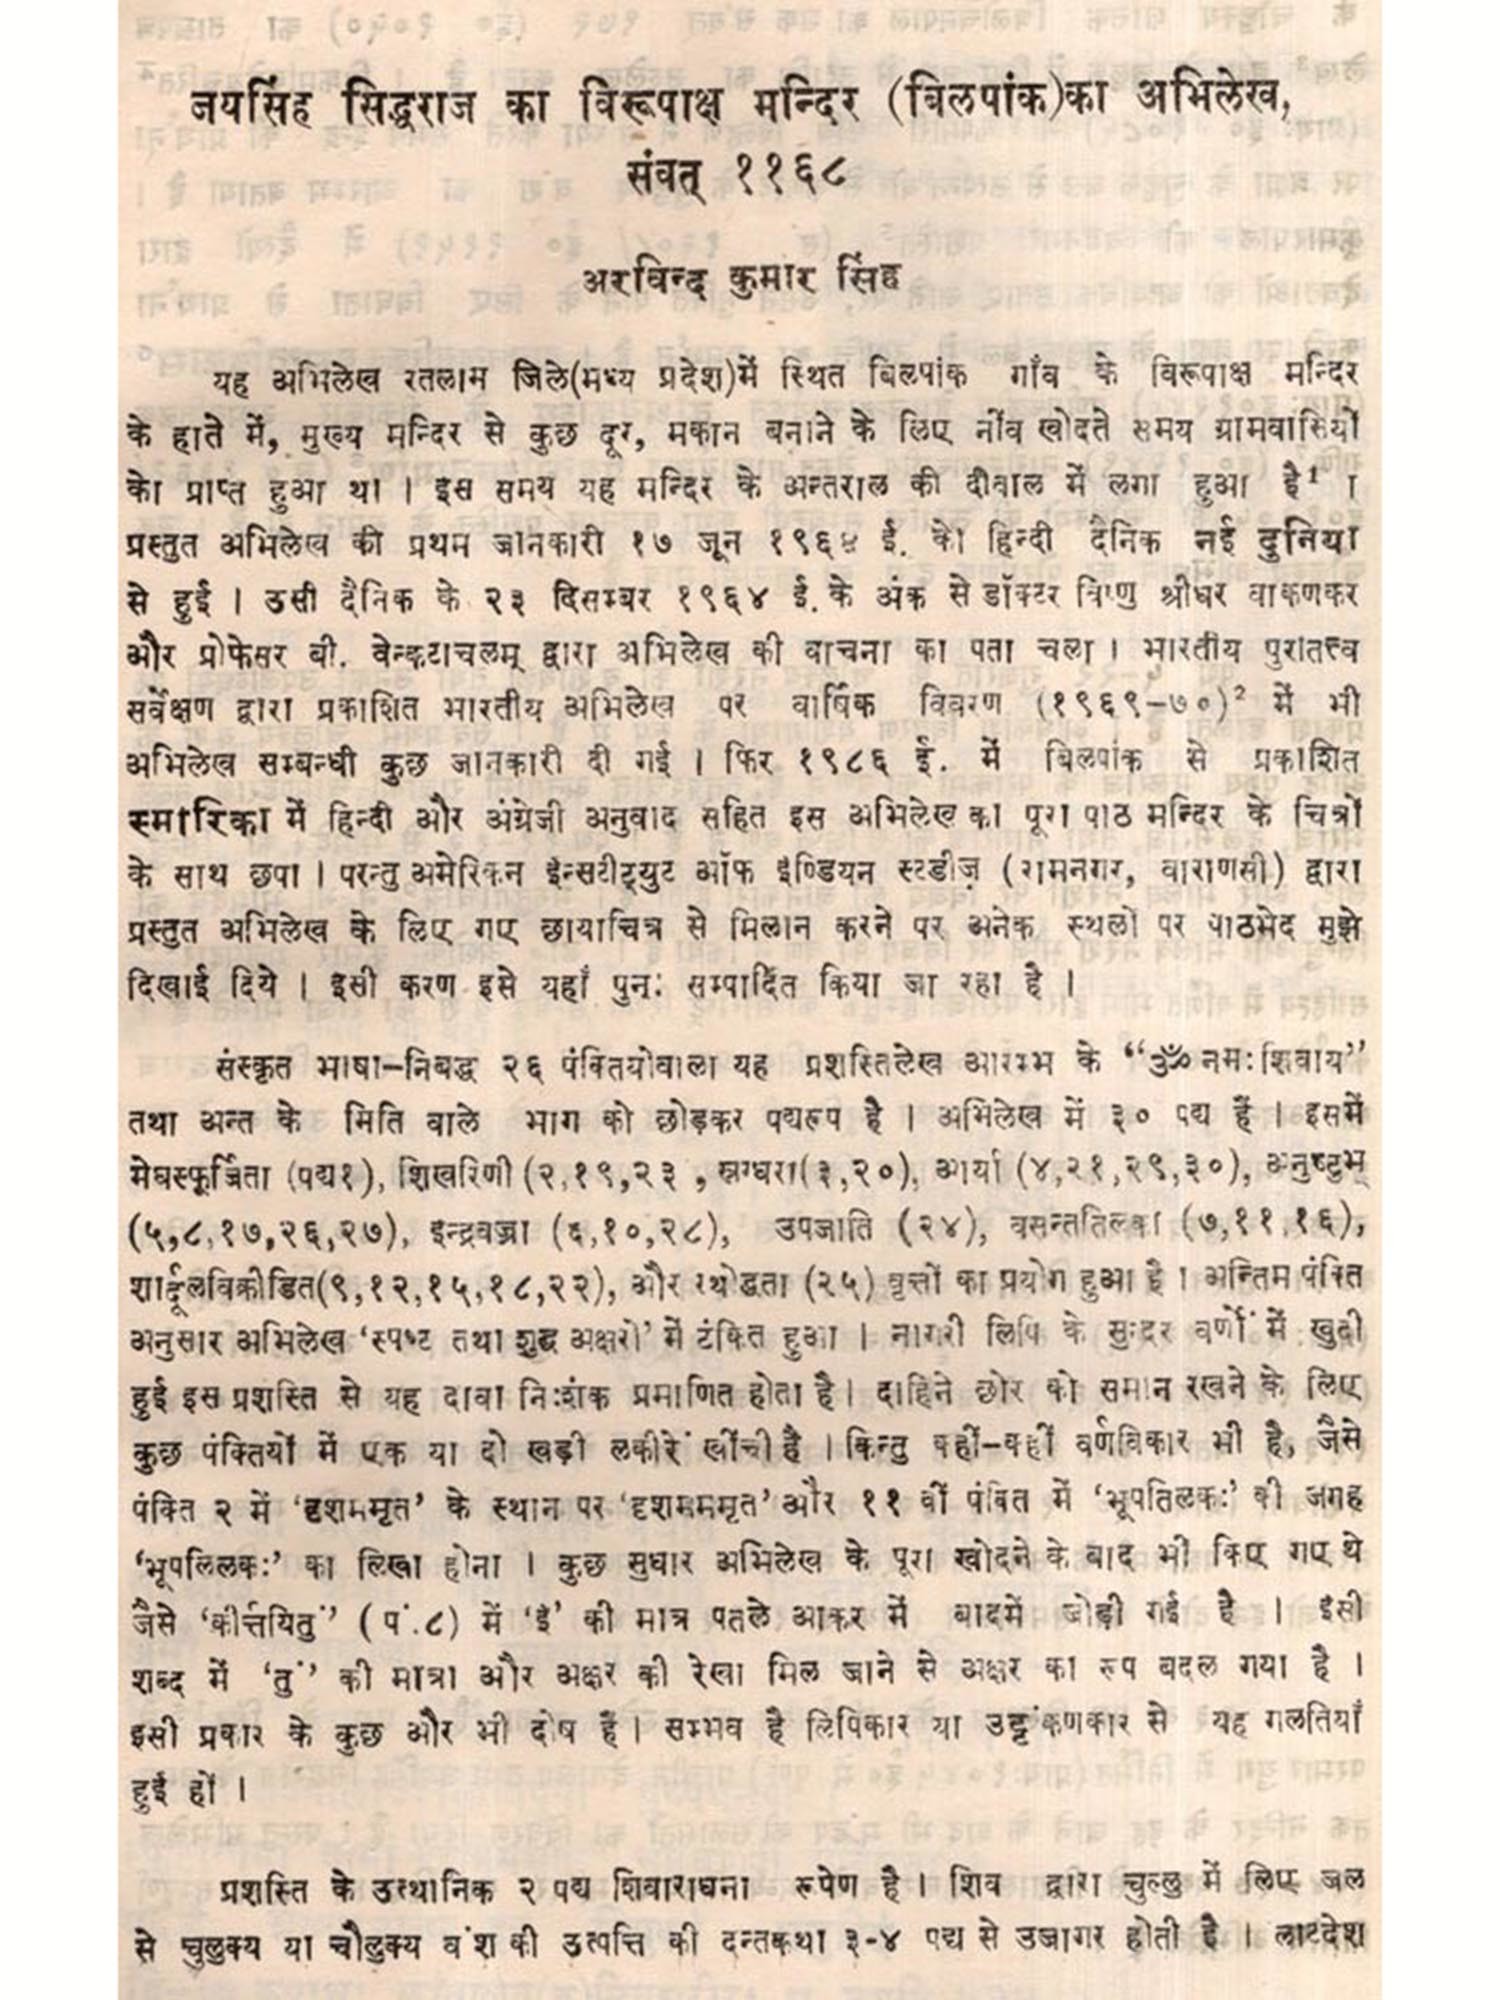 जयसिंह सिद्धराज का विरूपाक्ष मन्दिर (बिलपांक)का अभिलेख,
संवत् ११६८
अरविन्द कुमार सिंह
यह अभिलेख रतलाम जिले(मध्य प्रदेश)में स्थित बिलपांक गाँव के विरूपाक्ष मन्दिर
के हाते में, मुख्य मन्दिर से कुछ दूर, मकान बनाने के लिए नींव खोदते समय ग्रामवासियों
को प्राप्त हुआ था । इस समय यह मन्दिर के अन्तराल की दीवाल में लगा हुआ है¹ ।
प्रस्तुत अभिलेख की प्रथम जानकारी १७ जून १९६४ ई. को हिन्दी दैनिक नई दुनिया
से हुई । उसी दैनिक के २३ दिसम्बर १९६४ ई. के अंक से डॉक्टर विष्णु श्रीधर वाकणकर
और प्रोफेसर बी. वेन्कटाचलम् द्वारा अभिलेख की वाचना का पता चला । भारतीय पुरातत्त्व
सर्वेक्षण द्वारा प्रकाशित भारतीय अभिलेख पर वार्षिक विवरण (१९६९-७०)² में भी
अभिलेख सम्बन्धी कुछ जानकारी दी गई । फिर १९८६ ई. में बिलपांक से प्रकाशित
स्मारिका में हिन्दी और अंग्रेजी अनुवाद सहित इस अभिलेख का पूरा पाठ मन्दिर के चित्रों
के साथ छपा । परन्तु अमेरिकन ईन्सटीट्युट ऑफ इण्डियन स्टडीज़ (रामनगर, वाराणसी) द्वारा
प्रस्तुत अभिलेख के लिए गए छायाचित्र से मिलान करने पर अनेक स्थलों पर पाठभेद मुझे
दिखाई दिये । इसी करण इसे यहाँ पुनः सम्पादित किया जा रहा है ।
संस्कृत भाषा-निबद्ध २६ पंक्तियोंवाला यह प्रशस्तिलेख आरम्भ के “ॐ नमः शिवाय”
तथा अन्त के मिति वाले भाग को छोड़कर पद्यरूप है । अभिलेख में ३० पद्य हैं । इसमें
मेघस्फूर्जिता (पद्य१), शिखरिणी (२,१९,२३ , स्रग्धरा(३,२०), आर्या (४,२१,२९,३०), अनुष्टुभ्
(५,८,१७,२६,२७), इन्द्रवज्रा (६,१०,२८), उपजाति (२४), वसन्ततिलका (७,११,१६),
शार्दूलविक्रीडित(९,१२,१५,१८,२२), और रथोद्धता (२५) वृत्तों का प्रयोग हुआ है । अन्तिम पंक्ति
अनुसार अभिलेख ‘स्पष्ट तथा शुद्ध अक्षरों’ में टंकित हुआ । नागरी लिपि के सुन्दर वर्णों में खुदी
हुई इस प्रशस्ति से यह दावा निःशंक प्रमाणित होता है । दाहिने छोर को समान रखने के लिए
कुछ पंक्तियों में एक या दो खड़ी लकीरें खींची है । किन्तु कहीं-कहीं वर्णविकार भी है, जैसे
पंक्ति २ में ‘दृशममृत’ के स्थान पर ‘दृशमममृत’ और ११ वीं पंक्ति में ‘भूपतिलकः’ की जगह
‘भूपलिलकः’ का लिखा होना । कुछ सुधार अभिलेख के पूरा खोदने के बाद भी किए गए थे
जैसे ‘कीर्त्तयितुं’ (पं.८) में ‘ई’ की मात्र पतले आकर में बादमें जोड़ी गई है । इसी
शब्द में ‘तुं’ की मात्रा और अक्षर की रेखा मिल जाने से अक्षर का रूप बदल गया है ।
इसी प्रकार के कुछ और भी दोष हैं । सम्भव है लिपिकार या उट्टंकणकार से यह गलतियाँ
हुई हों ।
प्रशस्ति के उत्थानिक २ पद्य शिवाराधना रूपेण है । शिव द्वारा चुल्लु में लिए जल
से चुलुक्य या चौलुक्य वंश की उत्पत्ति की दन्तकथा ३-४ पद्य से उजागर होती है । लाटदेश